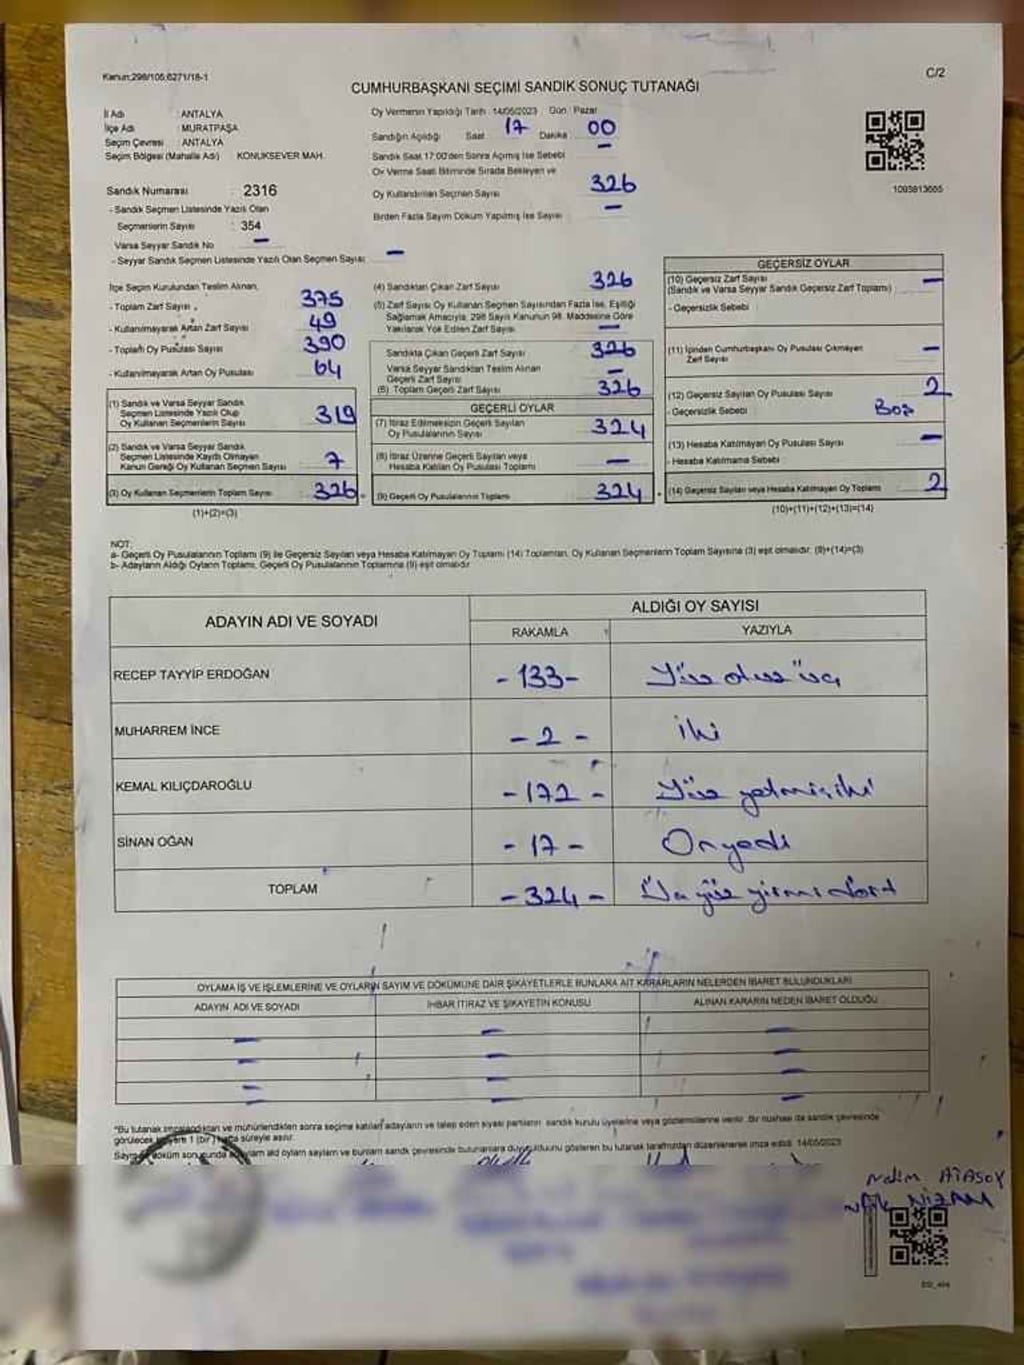 Kanun:298/105;6271/18-1
C/2
CUMHURBAŞKANI SEÇİMİ SANDIK SONUÇ TUTANAĞI
İl Adı : ANTALYA
İlçe Adı : MURATPAŞA
Seçim Çevresi : ANTALYA
Seçim Bölgesi (Mahalle Adı) KONUKSEVER MAH.
Sandık Numarası : 2316
- Sandık Seçmen Listesinde Yazılı Olan
Seçmenlerin Sayısı : 354
Varsa Seyyar Sandık No —
- Seyyar Sandık Seçmen Listesinde Yazılı Olan Seçmen Sayısı: —
Oy Vermenin Yapıldığı Tarih : 14/05/2023 Gün : Pazar
Sandığın Açıldığı Saat : 17 Dakika : 00
Sandık Saat 17:00'den Sonra Açılmış İse Sebebi —
Oy Verme Saati Bitiminde Sırada Bekleyen ve
Oy Kullandırılan Seçmen Sayısı 326
Birden Fazla Sayım Döküm Yapılmış İse Sayısı —
1093813665
İlçe Seçim Kurulundan Teslim Alınan;
- Toplam Zarf Sayısı 375
- Kullanılmayarak Artan Zarf Sayısı 49
- Toplam Oy Pusulası Sayısı 390
- Kullanılmayarak Artan Oy Pusulası 64
(1) Sandık ve Varsa Seyyar Sandık
Seçmen Listesinde Yazılı Olup
Oy Kullanan Seçmenlerin Sayısı 319
(2) Sandık ve Varsa Seyyar Sandık
Seçmen Listesinde Kayıtlı Olmayan
Kanun Gereği Oy Kullanan Seçmen Sayısı 7
(3) Oy Kullanan Seçmenlerin Toplam Sayısı 326
(1)+(2)=(3)
(4) Sandıktan Çıkan Zarf Sayısı 326
(5) Zarf Sayısı Oy Kullanan Seçmen Sayısından Fazla İse, Eşitliği
Sağlamak Amacıyla, 298 Sayılı Kanunun 98. Maddesine Göre
Yakılarak Yok Edilen Zarf Sayısı —
Sandıkta Çıkan Geçerli Zarf Sayısı 326
Varsa Seyyar Sandıktan Teslim Alınan
Geçerli Zarf Sayısı —
(6) Toplam Geçerli Zarf Sayısı 326
GEÇERLİ OYLAR
(7) İtiraz Edilmeksizin Geçerli Sayılan
Oy Pusulalarının Sayısı 324
(8) İtiraz Üzerine Geçerli Sayılan veya
Hesaba Katılan Oy Pusulası Toplamı —
(9) Geçerli Oy Pusulalarının Toplamı 324
GEÇERSİZ OYLAR
(10) Geçersiz Zarf Sayısı —
(Sandık ve Varsa Seyyar Sandık Geçersiz Zarf Toplamı)
- Geçersizlik Sebebi:
(11) İçinden Cumhurbaşkanı Oy Pusulası Çıkmayan
Zarf Sayısı —
(12) Geçersiz Sayılan Oy Pusulası Sayısı 2
- Geçersizlik Sebebi Boş
(13) Hesaba Katılmayan Oy Pusulası Sayısı —
- Hesaba Katılmama Sebebi:
(14) Geçersiz Sayılan veya Hesaba Katılmayan Oy Toplamı 2
(10)+(11)+(12)+(13)=(14)
NOT:
a- Geçerli Oy Pusulalarının Toplamı (9) ile Geçersiz Sayılan veya Hesaba Katılmayan Oy Toplamı (14) Toplamları, Oy Kullanan Seçmenlerin Toplam Sayısına (3) eşit olmalıdır. (9)+(14)=(3)
b- Adayların Aldığı Oyların Toplamı, Geçerli Oy Pusulalarının Toplamına (9) eşit olmalıdır.
ADAYIN ADI VE SOYADI
ALDIĞI OY SAYISI
RAKAMLA YAZIYLA
RECEP TAYYİP ERDOĞAN -133- Yüz otuz üç
MUHARREM İNCE -2- iki
KEMAL KILIÇDAROĞLU -172- Yüz yetmişiki
SİNAN OĞAN -17- Onyedi
TOPLAM -324- Üç yüz yirmi dört
OYLAMA İŞ VE İŞLEMLERİNE VE OYLARIN SAYIM VE DÖKÜMÜNE DAİR ŞİKAYETLERLE BUNLARA AİT KARARLARIN NELERDEN İBARET BULUNDUKLARI
ADAYIN ADI VE SOYADI İHBAR İTİRAZ VE ŞİKAYETİN KONUSU ALINAN KARARIN NEDEN İBARET OLDUĞU
— — —
— — —
— — —
— — —
*Bu tutanak imzalandıktan ve mühürlendikten sonra seçime katılan adayların ve talep eden siyasi partilerin sandık kurulu üyelerine veya gözlemcilerine verilir. Bir nüshası da sandık çevresinde
görülecek bir yere 1 (bir) hafta süreyle asılır.
döküm sonucunda oyların sayılarını ve bunların sandık çevresinde bulunanlara duyurulduğunu gösteren bu tutanak tarafımızdan düzenlenerek imza edildi. 14/05/2023
NİZAM